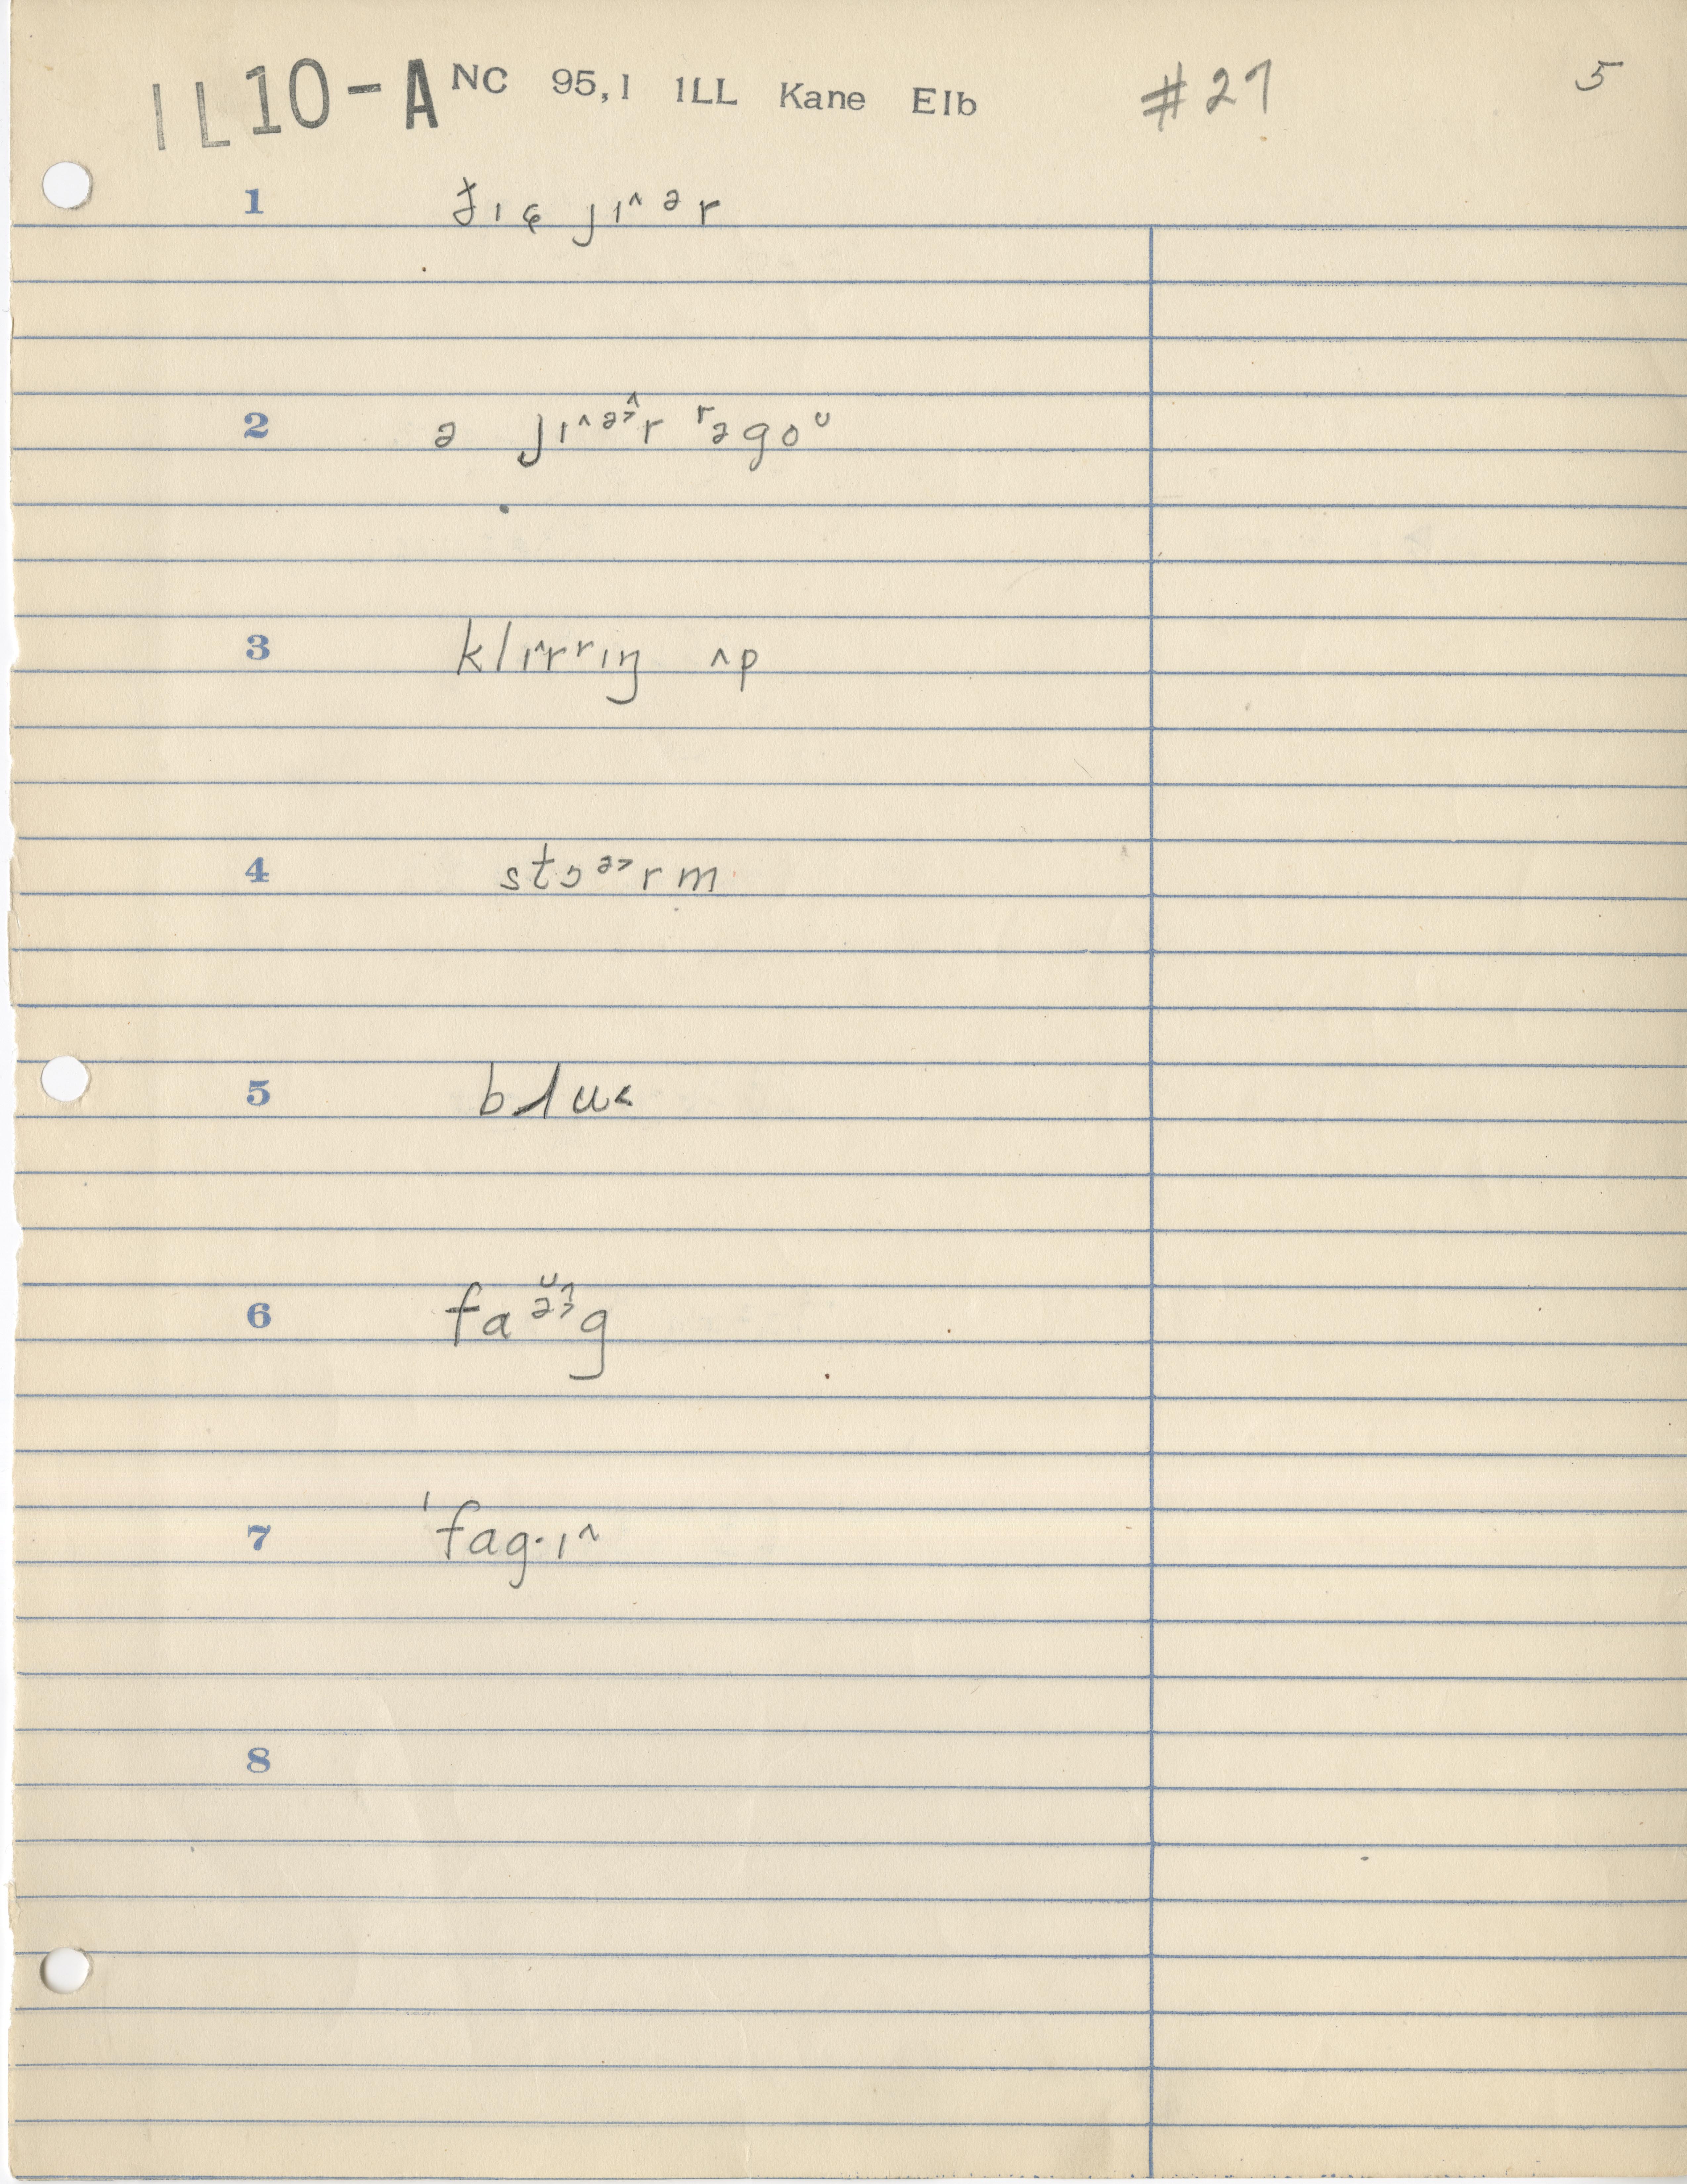 IL10-A NC 95,1 ILL Kane Elb #27 5
1 ɟɪɕ jɪ^ ᵊ r
2 ə jɪ^ᵊ>^r ʳəgoᵁ
3 klɪ^rʳɪŋ ʌp
4 stɔᵊ>rm
5 bluʻ
6 faᵊ̆>^g
7 ˈfag·ɪ^
8